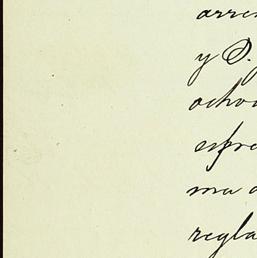 arre
y D.
ocho
espre
ma a
regla